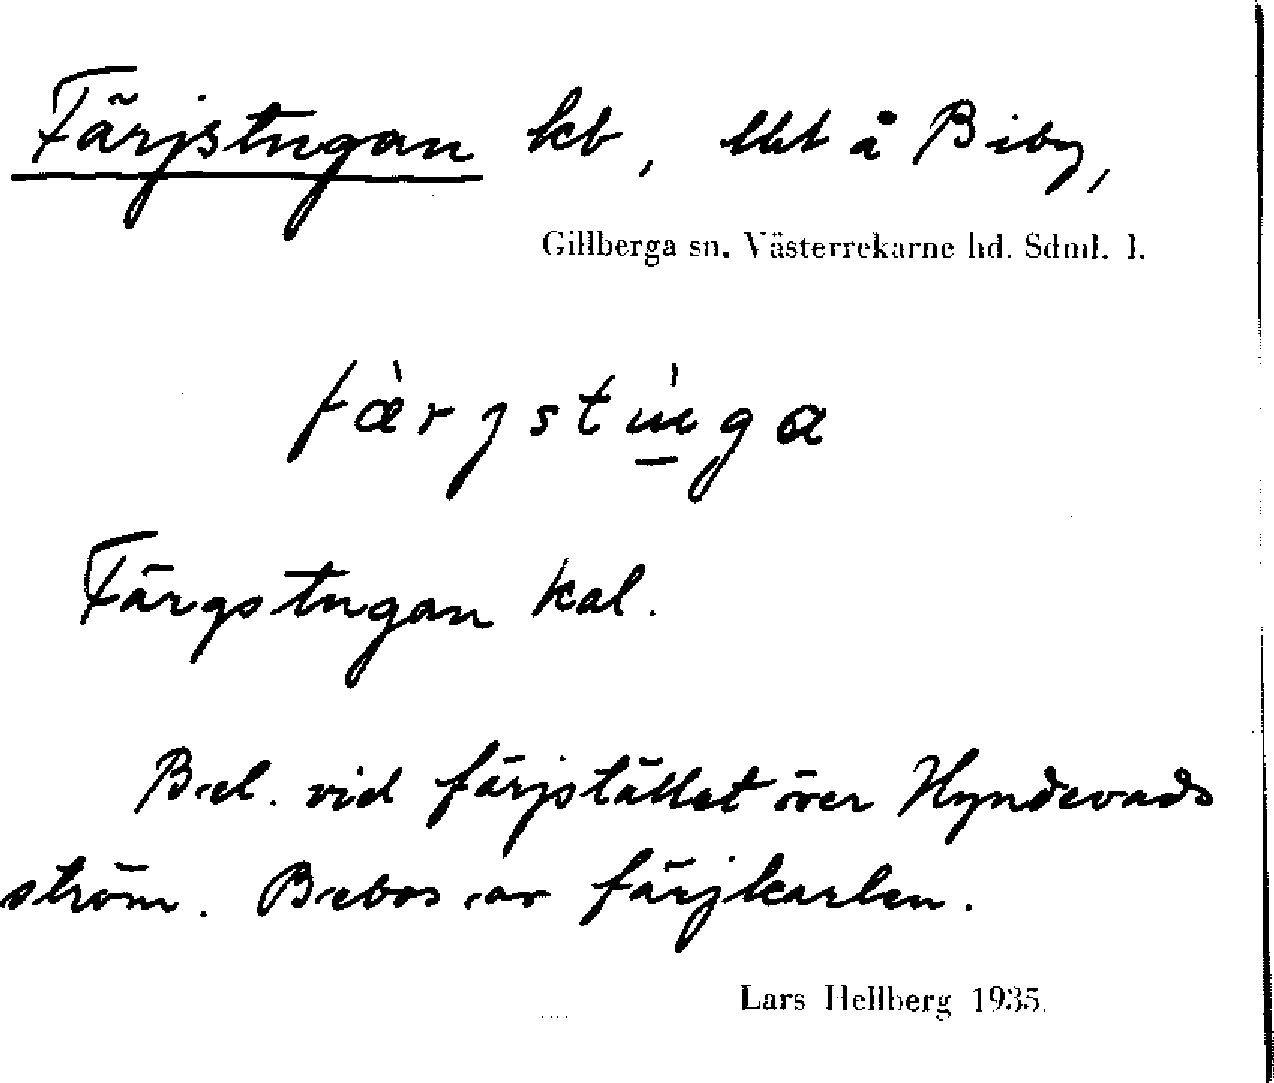 Färjstugan kb, tht å Biby,
Gillberga sn. Västerrekarne hd. Sdml. l.
fæ̀rjstú̱ga
Färgstugan kal.
Bel. vid färjstället över Hyndevads
ström. Bebos av färjkarlen.
Lars Hellberg 1935.